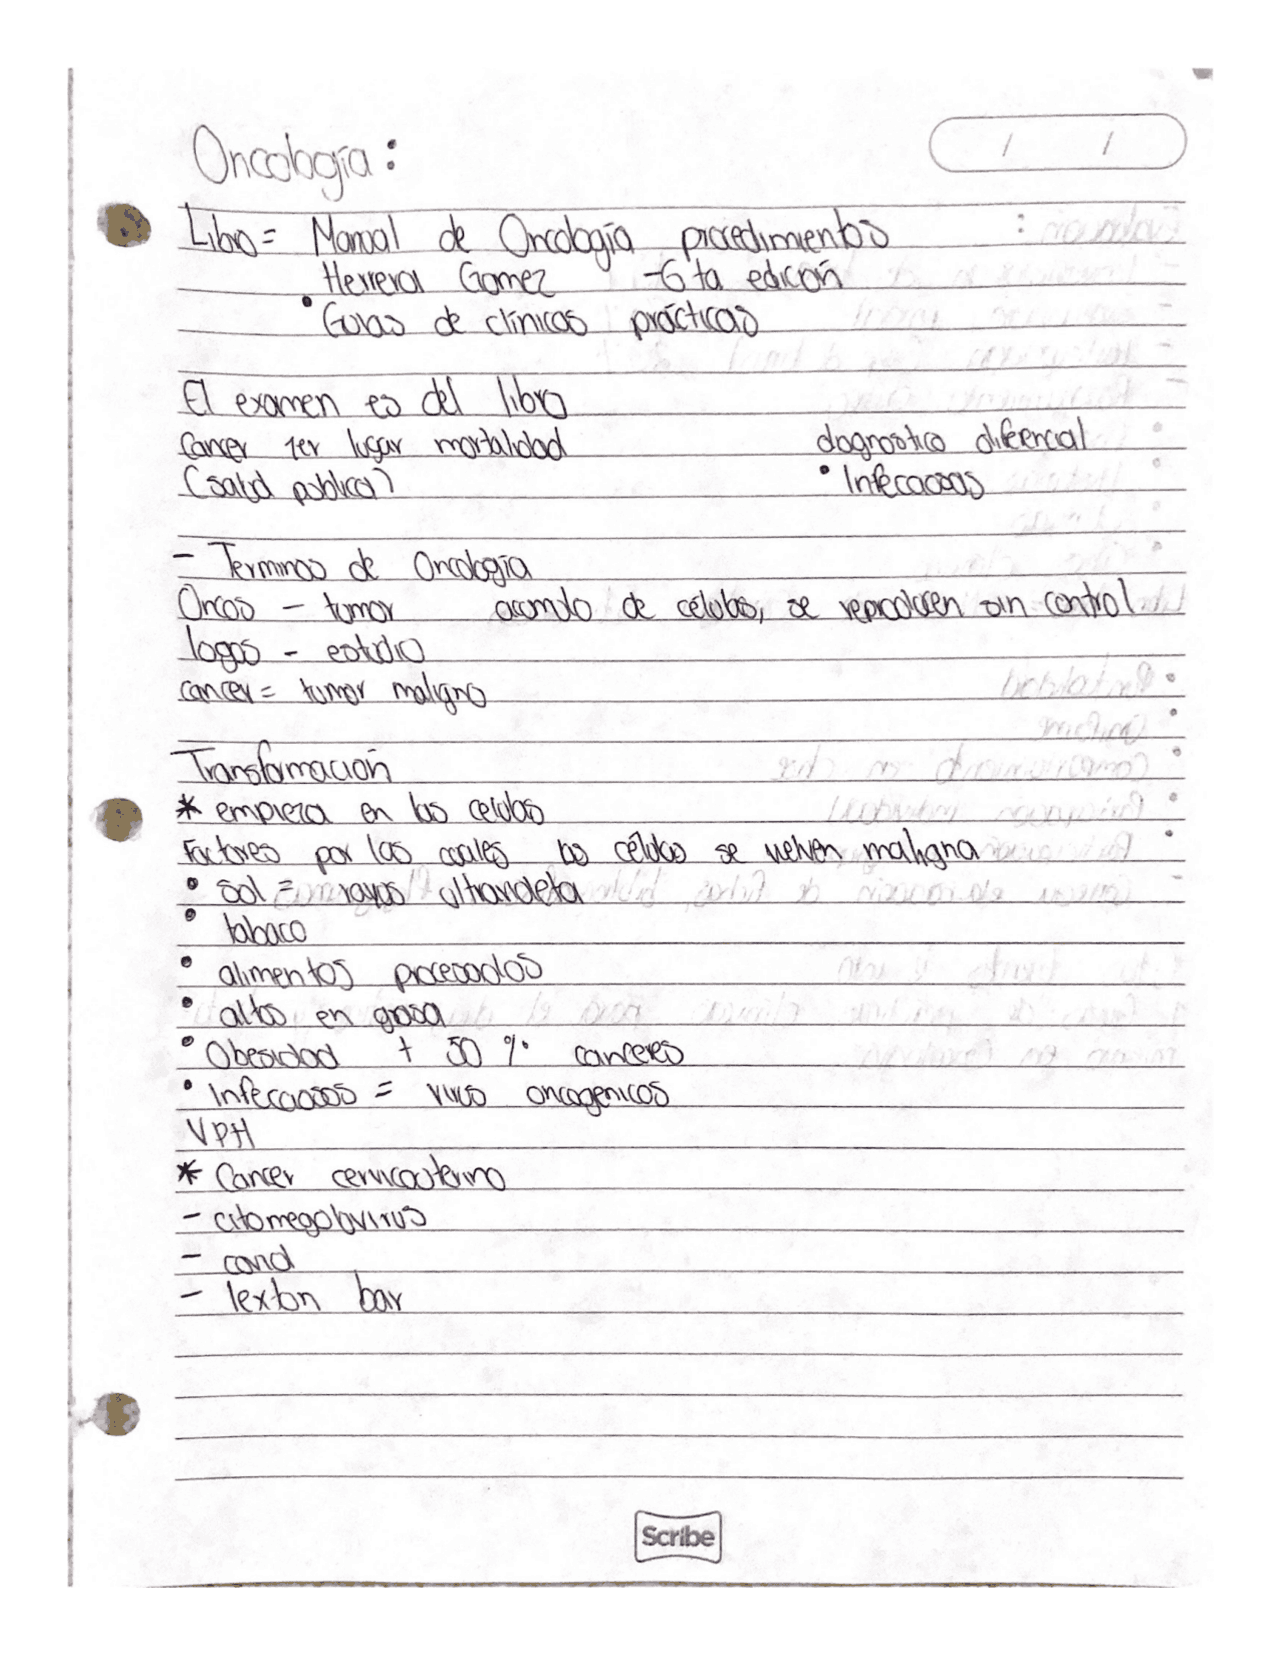 Oncología:
Libro = Manual de Oncología procedimientos
Herrera Gomez - 6ta edición
• Guias de clínicas prácticas
El examen es del libro
Cancer 1er lugar mortalidad
(salud publica)
diagnostico diferencial
• Infecciosas
- Terminos de Oncología
Oncos - tumor acumulo de células, se reproducen sin control
logos - estudio
cancer = tumor maligno
Transformación
* empieza en las celulas
Factores por las cuales las células se vuelven maligna
• Sol = rayos ultravioleta
• tabaco
• alimentos procesados
• altos en grasa
• Obesidad + 50 % canceres
• Infecciosos = virus oncogenicos
VPH
* Cancer cervicouterino
- citomegalovirus
- covid
- lexton bar
Scribe